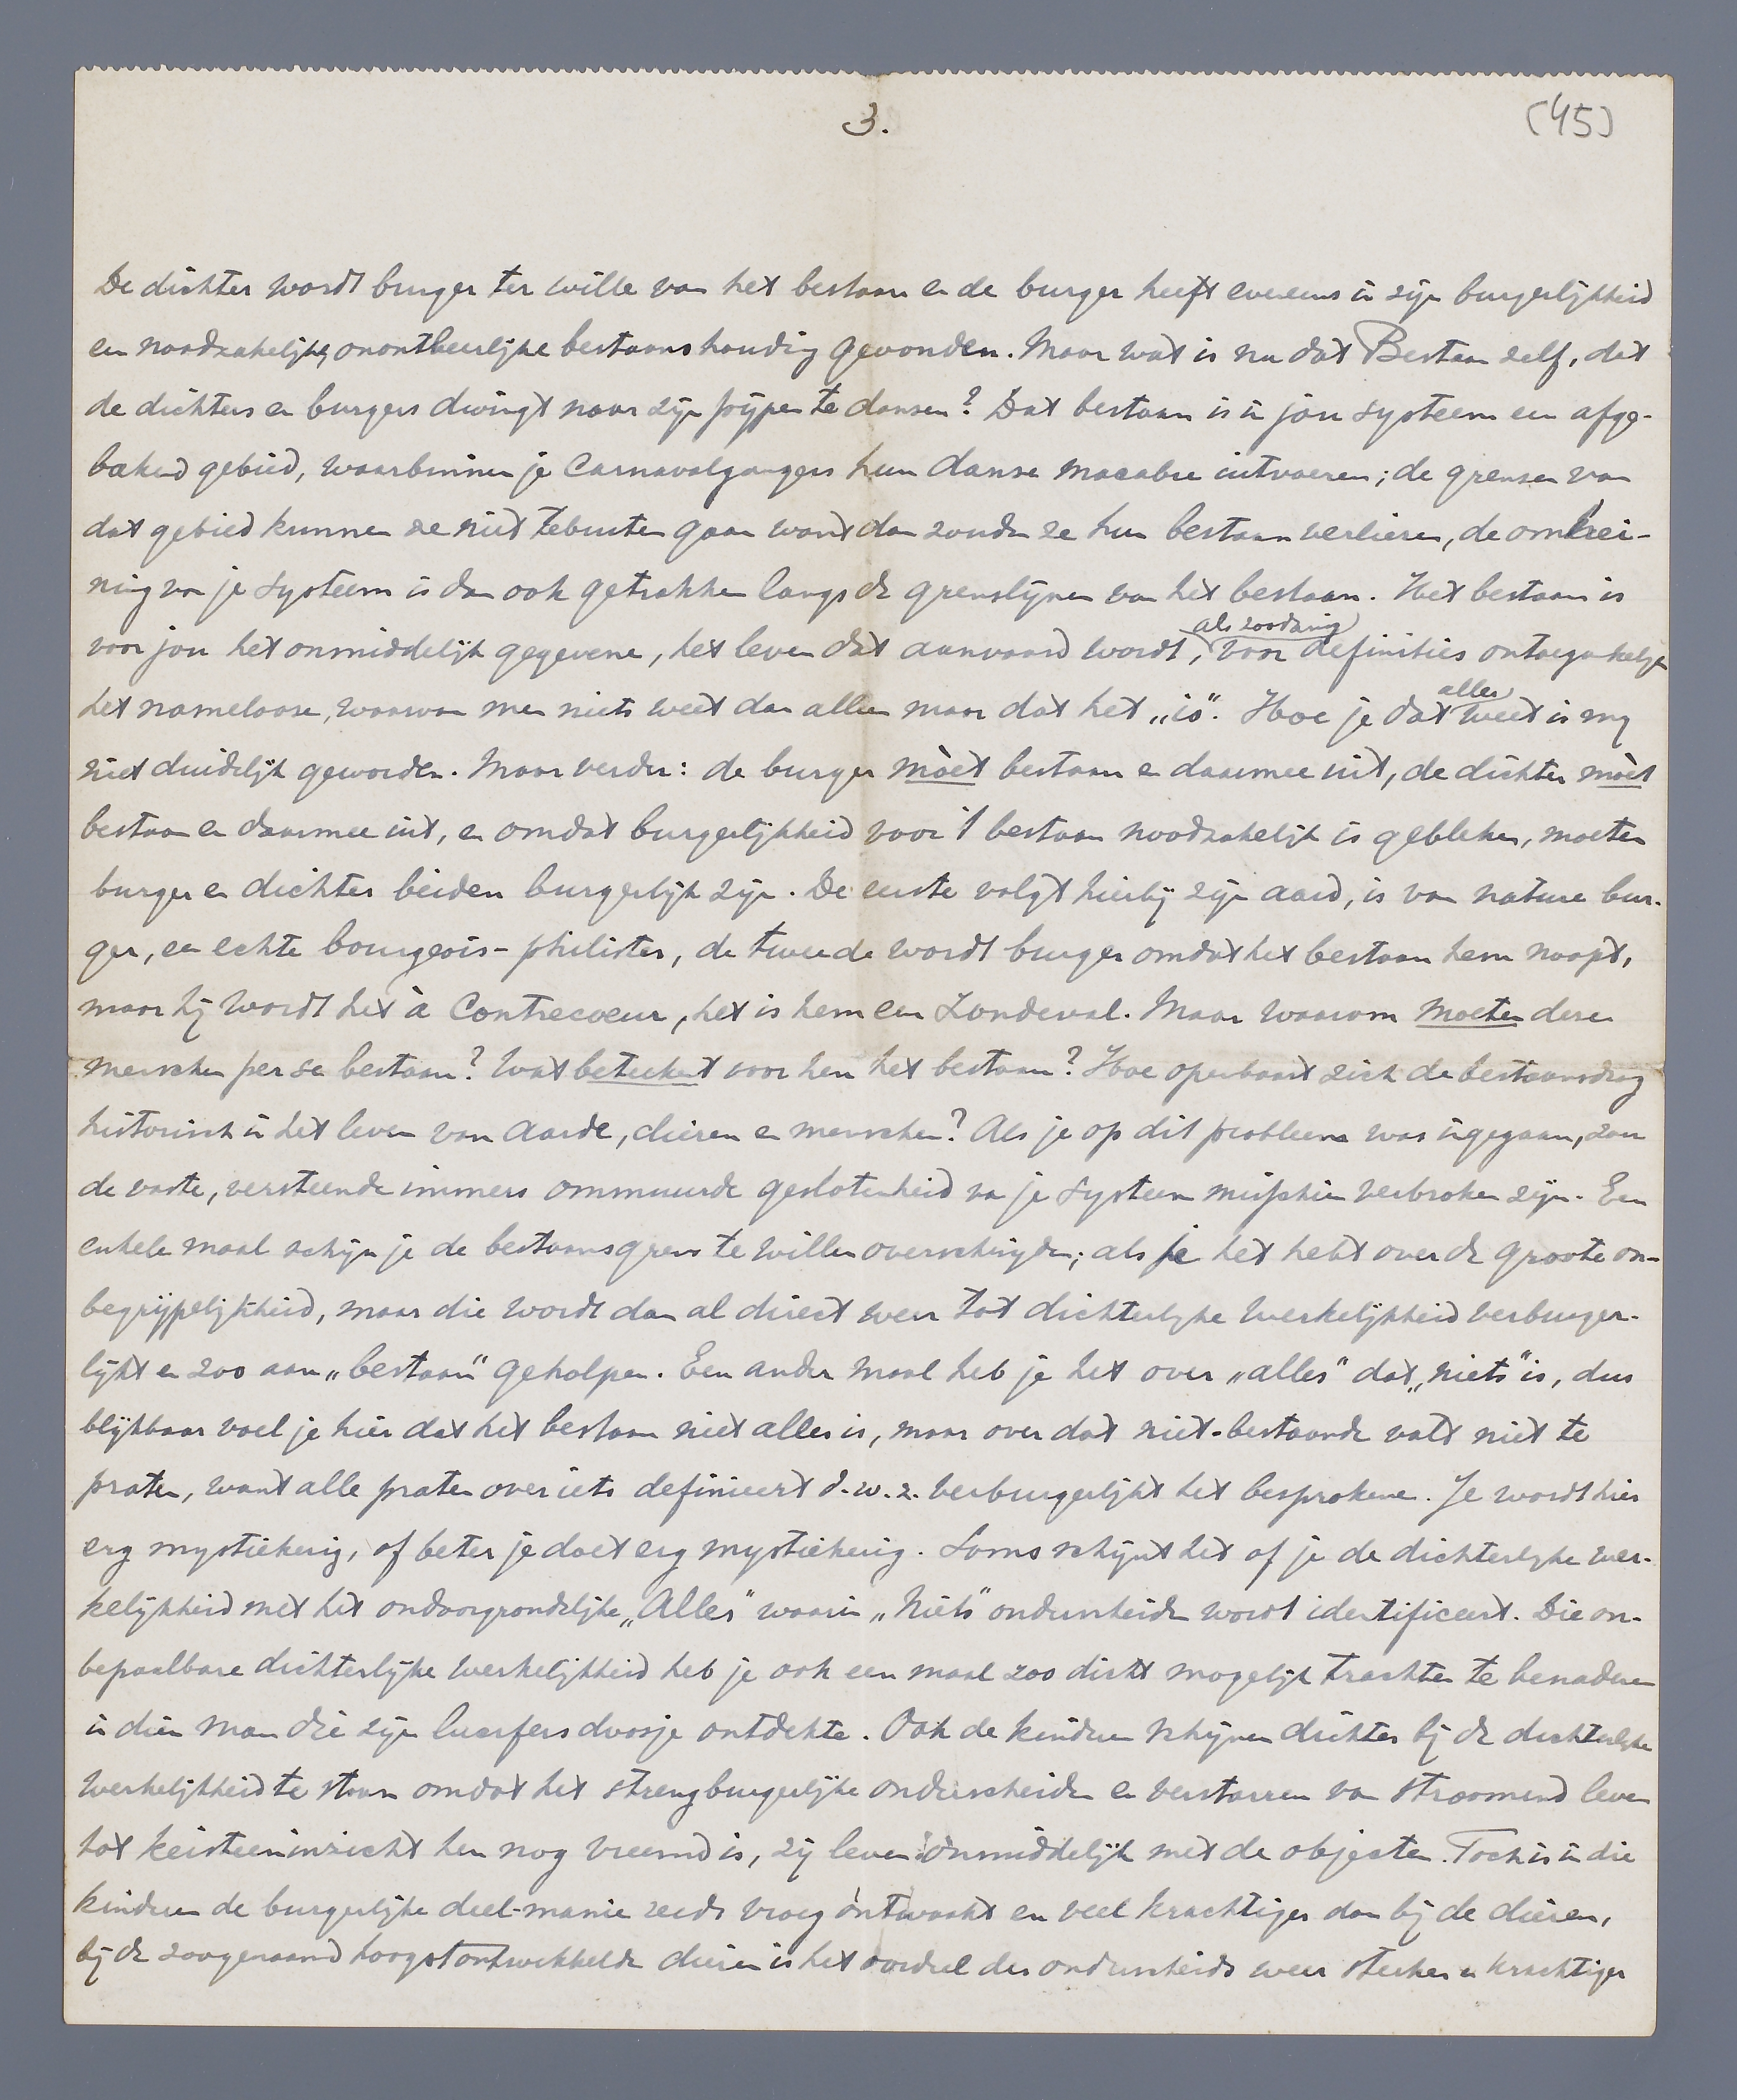 3.
(45)
De dichter wordt burger ter wille van het bestaan en de burger heeft eveneens in zijn burgerlijkheid
een noodzakelijke, onontbeerlijke bestaanshouding gevonden. Maar wat is nu dat Bestaan zelf, dat
de dichters en burgers dwingt naar zijn pijpen te dansen? Dat bestaan is in jou systeem een afge-
bakend gebied, waarbinnen je Carnavalgangers hun danse macabre uitvoeren; de grenzen van
dat gebied kunnen ze niet tebuiten gaan want dan zouden ze hun bestaan verliezen, de omhei-
ning van je systeem is dan ook getrokken langs de grenslijnen van het bestaan. Het bestaan is
voor jou het onmiddelijk gegevene, het leven dat aanvaard wordt, als zoodanig voor definities ontoegankelijk
het namelooze, waarvan men niets weet dan alleen maar dat het „is”. Hoe je dat alles weet is mij
niet duidelijk geworden. Maar verder: de burger mòet bestaan en daarmee uit, de dichter mòet
bestaan en daarmee uit, en omdat burgerlijkheid voor 't bestaan noodzakelijk is gebleken, moeten
burger en dichter beiden burgerlijk zijn. De eerste volgt hierbij zijn aard, is van nature bur-
ger, een echte bourgeois-philister, de tweede wordt burger omdat het bestaan hem noopt,
maar hij wordt het à contrecoeur, het is hem een Zondeval. Maar waarom moeten deze
menschen per se bestaan? Wat beteekent voor hen het bestaan? Hoe openbaart zich de bestaansdrang
historisch in het leven van aarde, dieren en menschen? Als je op dit probleem was ingegaan, zou
de vaste, versteende immers ommuurde geslotenheid van je systeem misschien verbroken zijn. Een
enkele maal schijn je de bestaansgrens te willen overschrijden; als je het hebt over de groote on-
begrijpelijkheid, maar die wordt dan al direct weer tot dichterlijke werkelijkheid verburger-
lijkt en zoo aan „bestaan” geholpen. Een ander maal heb je het over „alles” dat „niets” is, dus
blijkbaar voel je hier dat het bestaan niet alles is, maar over dat niet-bestaande valt niet te
praten, want alle praten over iets definieert d.w.z. verburgerlijkt het besprokene. Je wordt hier
erg mystiekerig, of beter je doet erg mystiekerig. Soms schijnt het of je de dichterlijke wer-
kelijkheid met het ondoorgrondelijke „Alles” waarin „Niets” onderscheiden wordt identificeert. Die on-
bepaalbare dichterlijke werkelijkheid heb je ook een maal zoo dicht mogelijk trachten te benaderen
in dien man die zijn lucifersdoosje ontdekte. Ook de kinderen schijnen dichter bij de dichterlijke
werkelijkheid te staan omdat het streng burgerlijke onderscheiden en verstarren van stroomend leven
tot keisteeninzicht hen nog vreemd is, zij leven onmiddelijk met de objecten. Toch is in die
kinderen de burgerlijke deel-manie reeds vroeg ontwaakt en veel krachtiger dan bij de dieren,
bij de zoogenaamd hoogst ontwikkelde dieren is het oordeel des onderscheids weer sterker en krachtiger